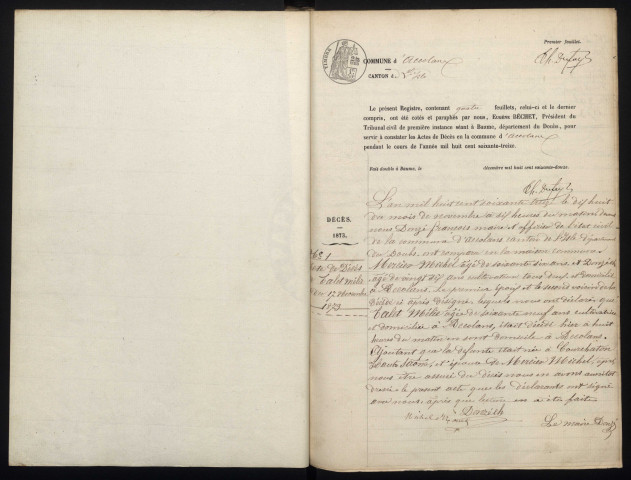 Premier feuillet.
TIMBRE
COMMUNE d'Accolans
CANTON de
Le présent Registre, contenant quatre feuillets, celui-ci et le dernier
compris, ont été cotés et paraphés par nous, BÉCHET, Président du
Tribunal civil de première instance séant à Baume, département du Doubs, pour
servir à constater les Actes de Décès en la commune d'Accolans
pendant le cours de l'année mil huit cent soixante-treize.
Fait double à Baume, le décembre mil huit cent soixante-douze.
DÉCÈS.
1873.
N° 1
Acte de Décès
de Talet
du 17 Novembre
1873
L'an mil huit cent soixante treize le dix huit
du mois de novembre à dix heures du matin devant
nous François maire et officier de l'état civil
de la commune d'Accolans canton de l'Isle département
du Doubs est comparu en la maison commune
Mercier Michel âgé de soixante six ans et
âgé de vingt six ans cultivateur tous deux domiciliés
à Accolans, le premier époux et le second voisin de la
décédée ci après désignée, lesquels nous ont déclaré que
Talet âgée de soixante neuf ans cultivatrice
et domiciliée à Accolans, était décédée hier à huit
heures du matin en son domicile à Accolans.
Ajoutant que la défunte était née à Courchaton
Haute Saône, et épouse de Mercier Michel, après
nous être assuré du décès nous en avons aussitôt
dressé le présent acte que les déclarants ont signé
avec nous après que lecture en a été faite
Le maire